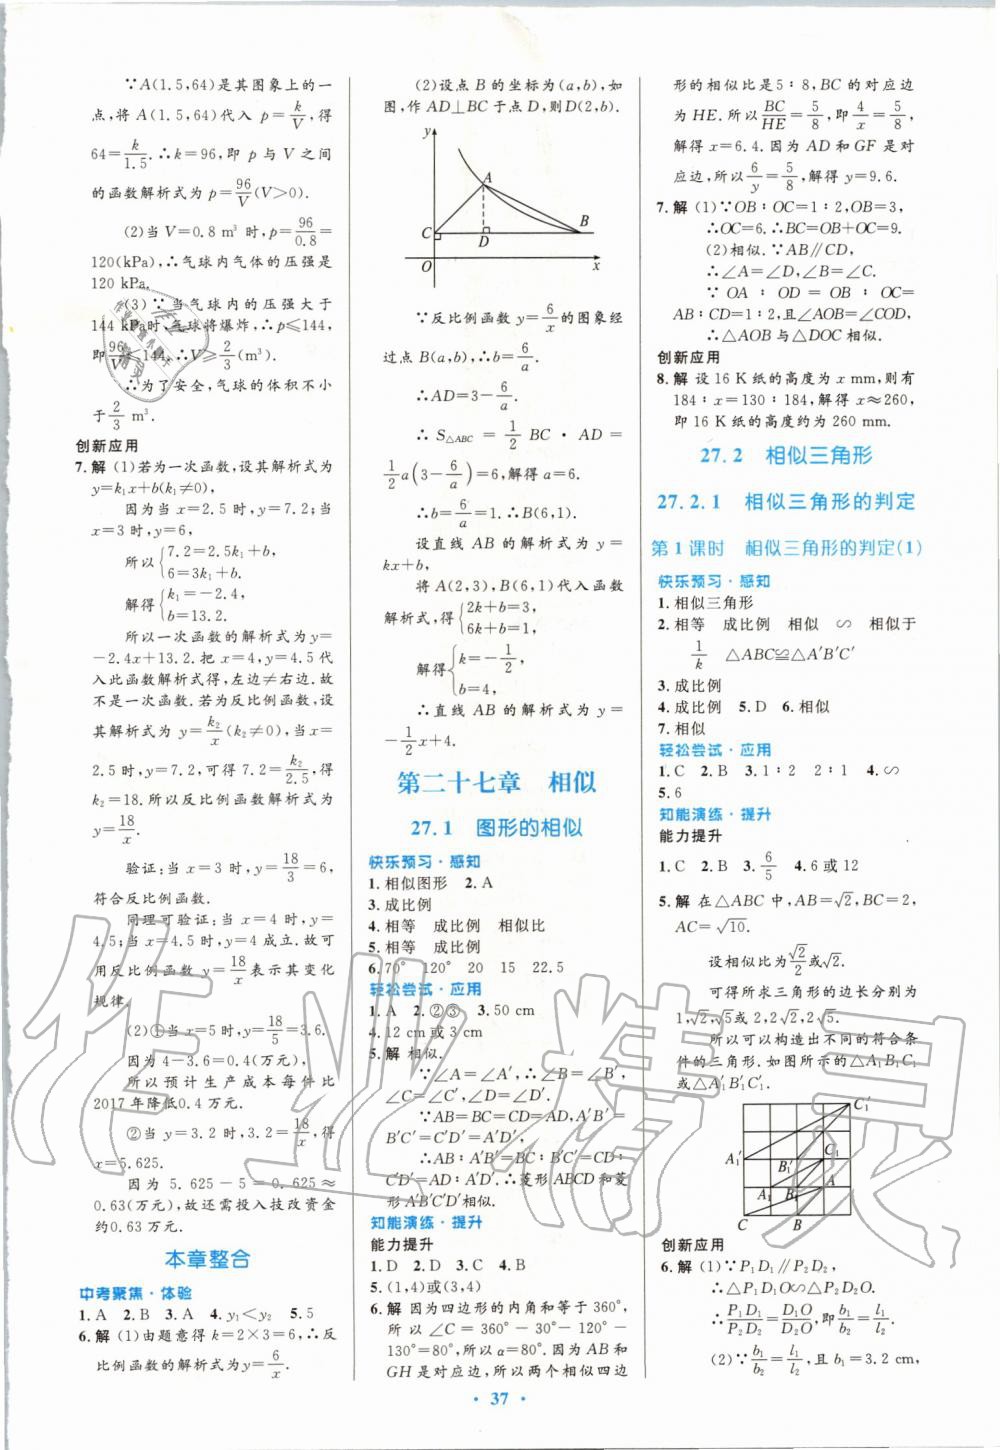 ∵A(1.5,64)是其图象上的一
点,将 A(1.5,64)代入 p=k/V,得
64=k/1.5.∴k=96,即 p 与 V 之间
的函数解析式为 p=96/V(V>0).
(2)当 V=0.8 m³ 时,p=96/0.8=
120(kPa),∴气球内气体的压强是
120 kPa.
(3)∵当气球内的压强大于
144 kPa时,气球将爆炸,∴p≤144,
即96/V≤144,∴V≥2/3(m³).
∴为了安全,气球的体积不小
于2/3 m³.
创新应用
7.解 (1)若为一次函数,设其解析式为
y=k₁x+b(k₁≠0),
因为当 x=2.5 时,y=7.2;当
x=3 时,y=6,
所以{7.2=2.5k₁+b,
6=3k₁+b,
解得{k₁=-2.4,
b=13.2.
所以一次函数的解析式为 y=
-2.4x+13.2.把 x=4,y=4.5 代
入此函数解析式得,左边≠右边.故
不是一次函数.若为反比例函数,设
其解析式为 y=k₂/x(k₂≠0),当 x=
2.5 时,y=7.2,可得 7.2=k₂/2.5,得
k₂=18.所以反比例函数解析式为
y=18/x.
验证:当 x=3 时,y=18/3=6,
符合反比例函数.
同理可验证:当 x=4 时,y=
4.5;当 x=4.5 时,y=4 成立.故可
用反比例函数 y=18/x表示其变化
规律.
(2)①当 x=5 时,y=18/5=3.6.
因为 4-3.6=0.4(万元),
所以预计生产成本每件比
2017 年降低0.4 万元.
②当 y=3.2 时,3.2=18/x,得
x=5.625.
因为 5.625-5=0.625≈
0.63(万元),故还需投入技改资金
约0.63 万元.
本章整合
中考聚焦·体验
1.A 2.B 3.A 4.y₁<y₂ 5.5
6.解 (1)由题意得 k=2×3=6,∴反
比例函数的解析式为y=6/x.
(2)设点 B 的坐标为(a,b),如
图,作 AD⊥BC于点 D,则D(2,b).
y
A
C
D
B
O
x
∵反比例函数 y=6/x的图象经
过点 B(a,b),∴b=6/a.
∴AD=3-6/a.
∴S△ABC=1/2 BC·AD=
1/2 a(3-6/a)=6,解得 a=6.
∴b=6/a=1.∴B(6,1).
设直线 AB 的解析式为 y=
kx+b,
将 A(2,3),B(6,1)代入函数
解析式,得{2k+b=3,
6k+b=1,
解得{k=-1/2,
b=4,
∴直线 AB 的解析式为 y=
-1/2x+4.
第二十七章 相似
27.1 图形的相似
快乐预习·感知
1.相似图形 2.A
3.成比例
4.相等 成比例 相似比
5.相等 成比例
6.70° 120° 20 15 22.5
轻松尝试·应用
1.A 2.②③ 3.50 cm
4.12 cm或 3 cm
5.解 相似.
∵∠A=∠A′,∴∠B=∠B′,
∠C=∠C′,∠D=∠D′.
∵AB=BC=CD=AD,A′B′=
B′C′=C′D′=A′D′,
∴AB∶A′B′=BC∶B′C′=CD∶
C′D′=AD∶A′D′.∴菱形ABCD和菱
形A′B′C′D′相似.
知能演练·提升
能力提升
1.D 2.D 3.C 4.C
5.(1,4)或(3,4)
6.解 因为四边形的内角和等于 360°,
所以 α=360°-30°-120°-
130°=80°,所以 α=80°.因为 AB 和
GH 是对应边,所以两个相似四边
形的相似比是5∶8,BC 的对应边
为 HE.所以BC/HE=5/8,即4/x=5/8,
解得 x=6.4.因为 AD 和 GF 是对
应边,所以6/y=5/8,解得 y=9.6.
7.解 (1)∵OB∶OC=1∶2,OB=3,
∴OC=6.∴BC=OB+OC=9.
(2)相似.∵AB∥CD,
∴∠A=∠D,∠B=∠C.
∵OA∶OD=OB∶OC=
AB∶CD=1∶2,且∠AOB=∠COD,
∴△AOB与△DOC相似.
创新应用
8.解 设 16 K 纸的高度为 x mm,则有
184∶x=130∶184,解得 x≈260,
即 16 K 纸的高度约为 260 mm.
27.2 相似三角形
27.2.1 相似三角形的判定
第 1 课时 相似三角形的判定(1)
快乐预习·感知
1.相似三角形
2.相等 成比例 相似 ∽ 相似于
1/k △ABC≌△A′B′C′
3.成比例
4.成比例 5.D 6.相似
7.相似
轻松尝试·应用
1.C 2.B 3.1∶2 2∶1 4.∽
5.6
知能演练·提升
能力提升
1.C 2.B 3.6/5 4.6 或 12
5.解 在△ABC 中,AB=√2,BC=2,
AC=√10.
设相似比为√2/2或√2.
可得所求三角形的边长分别为
1,√2,√5或 2,2√2,2√5.
所以可以构造出不同的符合条
件的三角形.如图所示的△A₁B₁C₁
或△A₁′B₁′C₁′.
C₁′
A₁′
B₁′
C₁
A₁
B₁
A
C
B
创新应用
6.解 (1)∵P₁D₁∥P₂D₂,
∴△P₁D₁O∽△P₂D₂O.
∴P₁D₁/P₂D₂=D₁O/D₂O,即b₁/b₂=l₁/l₂.
(2)∵b₁/b₂=l₁/l₂,且 b₁=3.2 cm,
· 37 ·
作业精灵